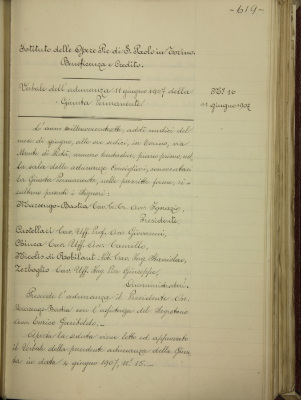 -619-
Istituto delle Opere Pie di S. Paolo in Torino.
Beneficenza e Credito.
Verbale dell'adunanza 11 giugno 1907 della
Giunta Permanente
N° 10
11 giugno 1907
L'anno millenovecentosette, addì undici del
mese di giugno, alle ore sedici, in Torino, via
Monte di Pietà, numero trentadue, piano primo, nel-
la sala delle adunanze Consigliari, convocatasi
la Giunta Permanente, nelle prescritte forme, ri-
sultano presenti i Signori:
Marsengo-Bastia Avv. Ignazio,
Presidente
Castellari Cav. Uff. Prof. Avv. Giovanni,
Cav. Uff. Avv. Camillo,
Nicolis di Robilant Nob. Cav. Ing. Stanislao,
Zerboglio Cav. Uff. Ing. Giuseppe,
Amministratori.
Presiede l'adunanza il Presidente Cav.
Marsengo-Bastia con l'assistenza del Segretario
Avv. Enrico Garibaldo.
Aperta la seduta viene letto ed approvato
il Verbale della precedente adunanza della Giun-
ta in data 4 giugno 1907, N°